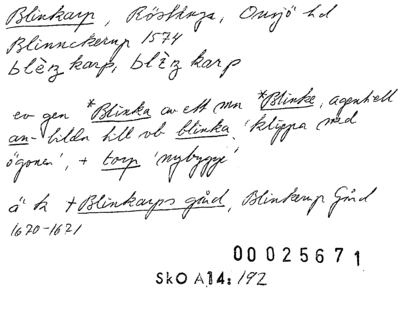 Blinkarp, Röstånga, Onsjö hd
Blinnckerup 1574
blèŋkarp, blèŋkarp
ev gen *Blinka av ett mn *Blinke, agentiell
an-bildn till vb blinka 'klippa med
ögonen', + torp 'nybygge'
ä k +Blinkarps gård, Blinkerup Gård
1670-1671
00025671
SkO A14: 192